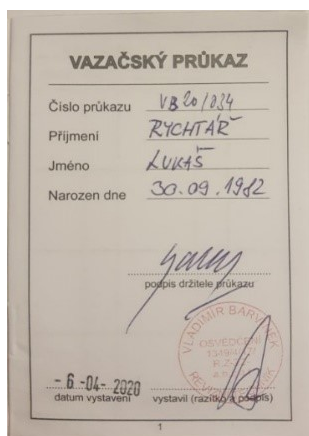 VAZAČSKÝ PRŮKAZ
Číslo průkazu VB20/034
Příjmení RYCHTÁŘ
Jméno LUKÁŠ
Narozen dne 30.09.1982
podpis držitele průkazu
VLADIMÍR
OSVĚDČENÍ
- 6 -04- 2020
datum vystavení vystavil (razítko a podpis)
1